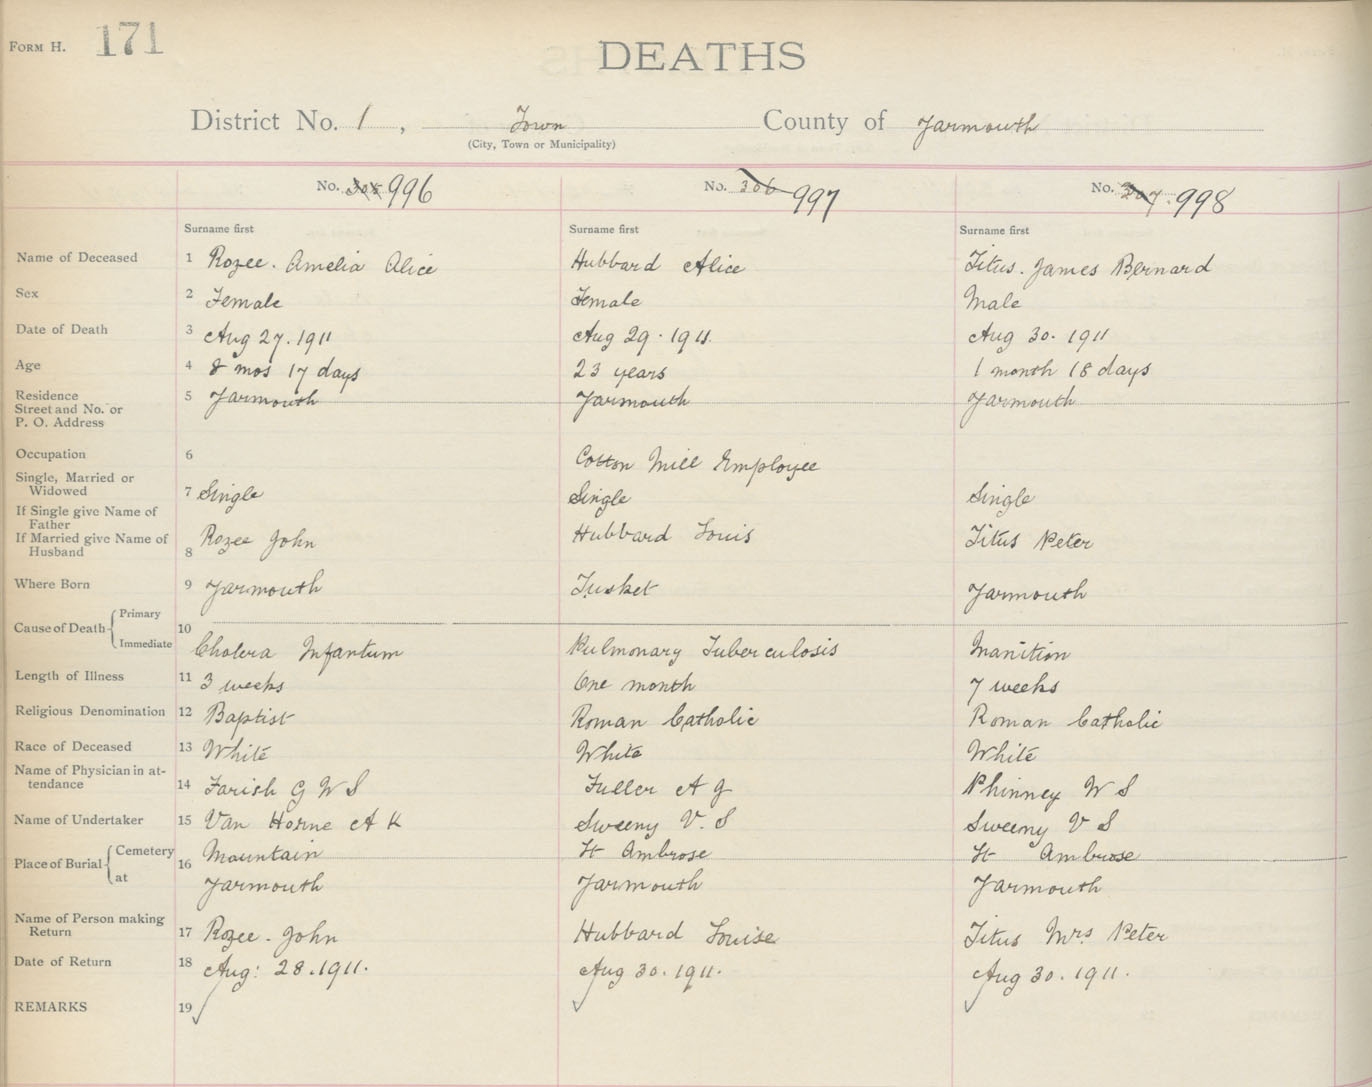 FORM H. 171
DEATHS
District No. 1, Town County of Yarmouth
(City, Town or Municipality)
No. 305 996 No. 306 997 No. 307. 998
Surname first Surname first Surname first
Name of Deceased 1 Rozee. Amelia Alice Hubbard Alice Titus. James Bernard
Sex 2 Female Female Male
Date of Death 3 Aug 27. 1911 Aug 29. 1911. Aug 30. 1911
Age 4 8 mos 17 days 23 years 1 month 18 days
Residence
Street and No. or
P. O. Address 5 Yarmouth Yarmouth Yarmouth
Occupation 6 Cotton Mill Employee
Single, Married or
Widowed 7 Single Single Single
If Single give Name of
Father
If Married give Name of
Husband 8 Rozee John Hubbard Louis Titus Peter
Where Born 9 Yarmouth Tusket Yarmouth
Cause of Death Primary
Immediate 10 Cholera Infantum Pulmonary Tuberculosis Inanition
Length of Illness 11 3 weeks One month 7 weeks
Religious Denomination 12 Baptist Roman Catholic Roman Catholic
Race of Deceased 13 White White White
Name of Physician in at-
tendance 14 Farish G W S Fuller A J Phinney W S
Name of Undertaker 15 Van Horne A K Sweeny V. S Sweeny V S
Place of Burial Cemetery 16 Mountain St Ambrose St Ambrose
at Yarmouth Yarmouth Yarmouth
Name of Person making
Return 17 Rozee. John Hubbard Louise Titus Mrs Peter
Date of Return 18 Aug: 28. 1911. Aug 30. 1911. Aug 30. 1911.
REMARKS 19